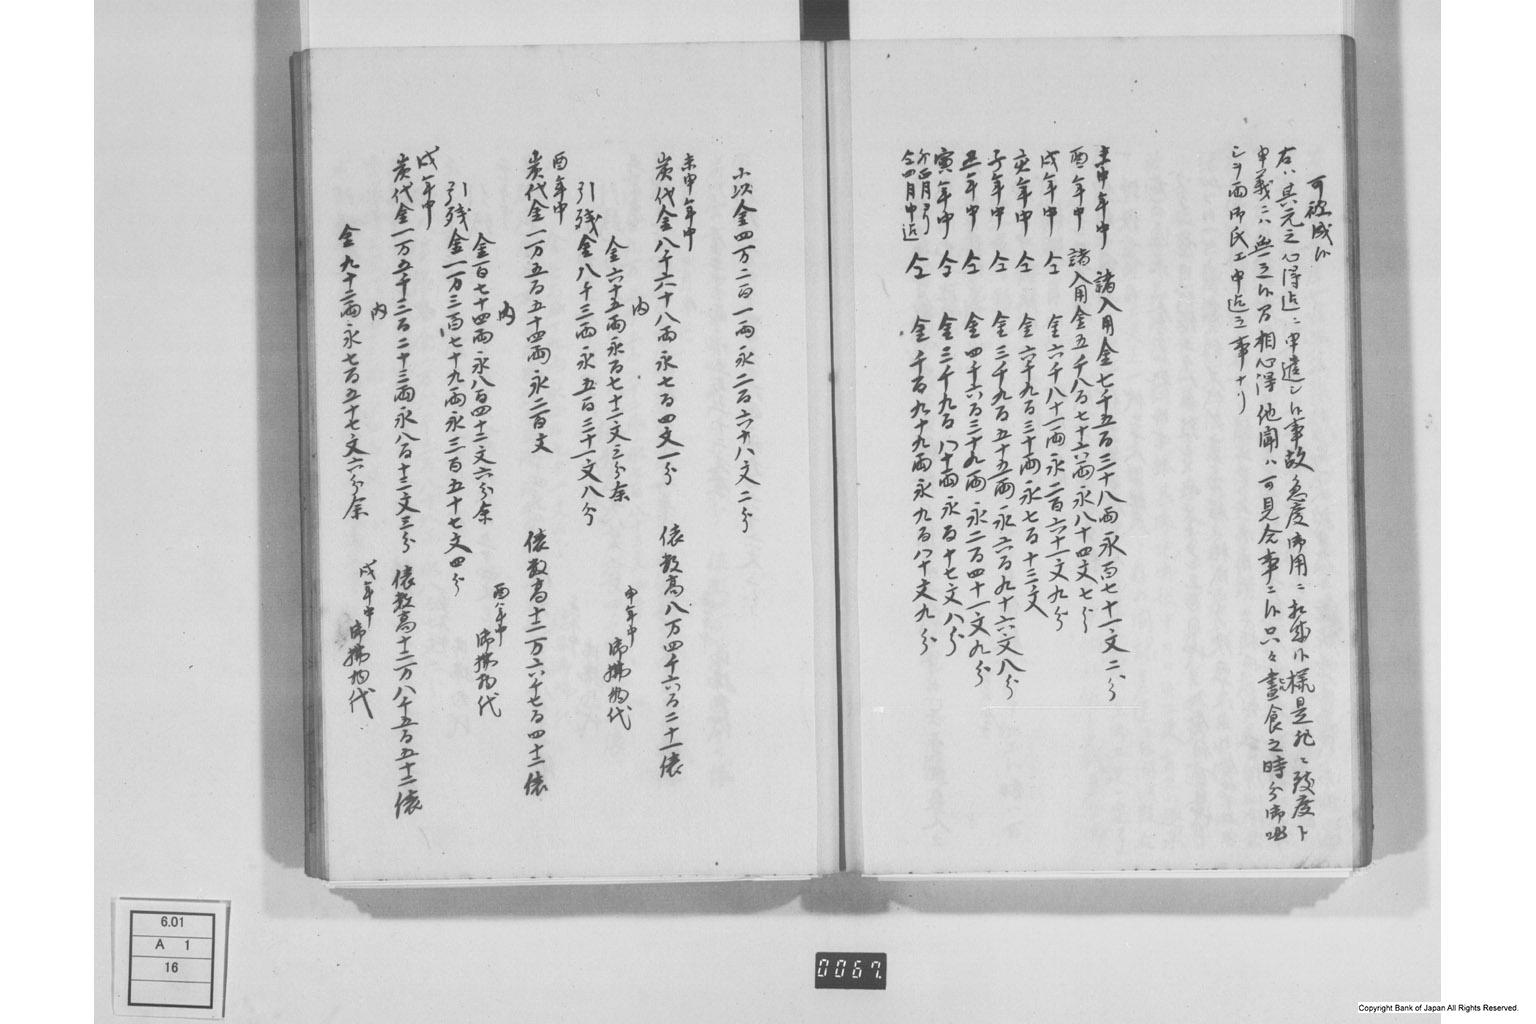 可被成候
右ハ其元之心得迄ニ申遣し候事故急度御用ニ相成候様是非ニ致度ト
申義ニハ無之候間相心得他聞ハ可見合事ニ候只々晝食之時分御咄
シヲ両御氏エ申迄之事ナリ
未申年中 諸入用金七千五百三十八両永百七十一文二分
酉年中 諸入用金五千八百七十六両永八十四文七分
戌年中 仝 金六千八十一両永二百六十一文九分
亥年中 仝 金六千九百三十両永七百十三文
子年中 仝 金三千九百五十五両永六百九十六文八分
丑年中 仝 金四千六百三十九両永二百四十一文九分
寅年中 仝 金三千九百八十両永百十七文八分
卯正月ヨリ
仝四月中迄 仝 金千百九十九両永九百八十文九分
小以金四万二百一両永二百六十八文二分
未申年中
炭代金八千六十八両永七百四文一分 俵数高八万四千六百二十一俵
内
金六十五両永百七十二文三分余 申年中 御拂物代
引残金八千三両永五百三十一文八分
酉年中
炭代金一万五百五十四両永二百文 俵数高十二万六千七百四十二俵
内
金百七十四両永八百四十二文六分余 酉年中 御拂物代
引残金一万三百七十九両永三百五十七文四分
戌年中
炭代金一万五千三百二十三両永八百十三文三分 俵数高十二万八千五百五十二俵
内
金九十二両永七百五十七文六分余 戌年中 御拂物代
6.01
A 1
16
0067
Copyright Bank of Japan All Rights Reserved.